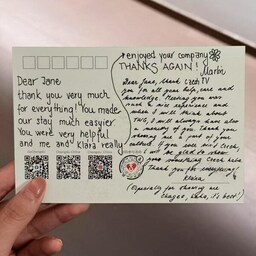 Dear Jane
thank you very much
for everything! You made
our stay much easier
You were very helpful
and me and Klara really
enjoyed your company
THANKS AGAIN!
Martin
Dear Jane, thank
you for all your help, care and
knowledge. Meeting you was
such a nice experience and
when I will think about
I will always have also
a memory of you. Thank you
showing me a part of your
culture! If you will visit Czech,
I will be glad to show
you something Czech
Thank you for everything!
Klára
(Especially for showing me
it's best!)